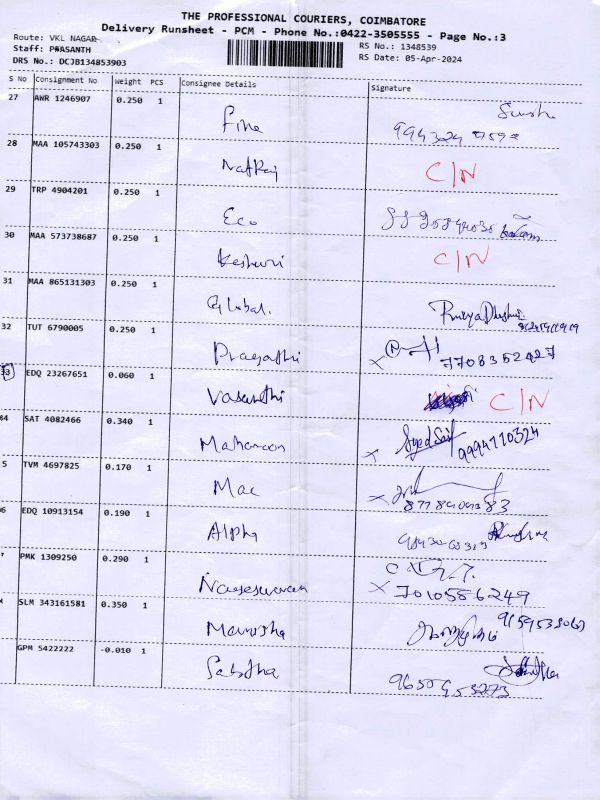 THE PROFESSIONAL COURIERS, COIMBATORE
Delivery Runsheet - PCM - Phone No.:0422-3505555 - Page No.:3
Route: VKL NAGAR
RS No.: 1348539
Staff: PRASANTH
RS Date: 05-Apr-2024
DRS No.: DCJB134853903
S No Consignment No Weight PCS Consignee Details Signature
27 AWR 1246907 0.250 1 Fine
28 MAA 105743303 0.250 1 Natraj C/N
29 TRP 4904201 0.250 1 Eco
30 MAA 573738687 0.250 1 Keshuri C/N
31 MAA 865131303 0.250 1 Global.
32 TUT 6790005 0.250 1 Pragathi 7708352427
33 EDQ 23267651 0.060 1 Vasanthi C/N
34 SAT 4082466 0.340 1 Syed 9994110324
5 TVM 4697825 0.170 1 Mac
6 EDQ 10913154 0.190 1 Alpha
PMK 1309250 0.290 1 Nageswaran 7010556249
SLM 343161581 0.350 1 Manisha
GPM 5422222 -0.010 1 Sabitha